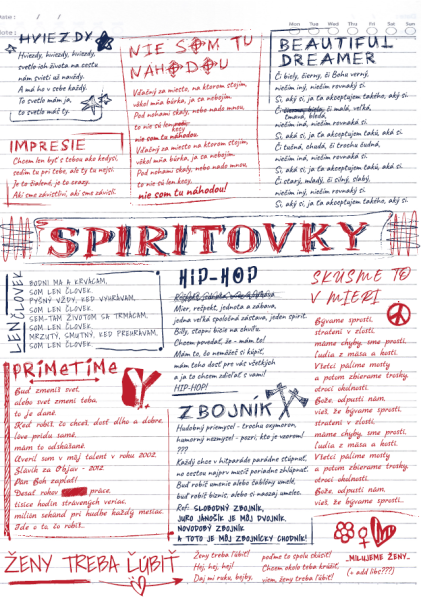 Date: / /
Mon Tue Wed Thu Fri Sat Sun
HVIEZDY
Hviezdy, hviezdy, hviezdy,
svetlo ich života na cestu
nám svieti už navždy.
A má ho v sebe každý.
To svetlo mám ja,
to svetlo máš ty.
IMPRESIE
Chcem len byť s tebou ako kedysi,
sedím tu pri tebe, ale ty tu nejsi.
Je to šialené, ja to crazy.
Aki sme závislí, aki sme závislí.
NIE SOM TU
NÁHODOU
Vďačný za miesto, na ktorom stojím,
vôkol mňa búrka, ja sa nebojím.
Pod nohami skaly, nebo nado mnou,
to nie sú len
kecy
nie som tu náhodou.
Vďačný za miesto, na ktorom stojím,
vôkol mňa búrka, ja sa nebojím.
Pod nohami skaly, nebo nado mnou,
to nie sú len kecy,
nie som tu náhodou!
BEAUTIFUL
DREAMER
Či biely, čierny, či Bohu verný,
niečím iný, niečím rovnaký si.
Si, aký si, ja ťa akceptujem takého, aký si.
Č či malá, veľká,
tmavá, bledá,
niečím iná, niečím rovnaká si.
Si, aká si, ja ťa akceptujem takú, aká si.
Či tučná, chudá, či trochu čudná,
niečím iná, niečím rovnaká si.
Si, aká si, ja ťa akceptujem takú, aká si.
Či starý, mladý, či silný, slabý,
niečím iný, niečím rovnaký si.
Si, aký si, ja ťa akceptujem takého, aký si.
SPIRITOVKY
LEN ČLOVEK
BODNI MA A KRVÁCAM,
SOM LEN ČLOVEK.
PYŠNÝ VŽDY, KEĎ VYHRÁVAM,
SOM LEN ČLOVEK.
SEM-TAM ŽIVOTOM SA TRMÁCAM,
SOM LEN ČLOVEK.
MRZUTÝ, SMUTNÝ, KEĎ PREHRÁVAM,
SOM LEN ČLOVEK.
HIP-HOP
Mier, rešpekt, jednota a zábava,
jedna veľká spoločná zástava, jeden spirit.
Silly, stopni bicie na chvíľu.
Chcem povedať, že - mám to!
Mám to, čo nemôžeš si kúpiť,
mám toho dosť pre vás všetkých
a ja to chcem zdieľať s vami!
HIP-HOP!
SKÚSME TO
V MIERI
Bývame sprostí,
stratení v zlosti,
máme chyby, sme prostí,
ľudia z mäsa a kostí.
Všetci pálime mosty
a potom zbierame trosky,
otroci okolností.
Bože, odpusti nám,
vieš, že bývame sprostí,
stratení v zlosti,
máme chyby, sme prostí,
ľudia z mäsa a kostí.
Všetci pálime mosty
a potom zbierame trosky,
otroci okolností.
Bože, odpusti nám,
vieš, že bývame sprostí...
PRÍMETÍME
Buď zmeníš svet,
alebo svet zmení teba,
to je dané.
Keď robíš, čo chceš, dosť dlho a dobre,
love prídu samé,
mám to odskúšané.
Uveril som v môj talent v roku 2002.
Slávik za Objav - 2012.
Pán Boh zaplať!
Desať rokov práce,
tisíce hodín strávených veriac,
milión sekúnd pri hudbe každý mesiac.
Ide o to, čo robíš...
ZBOJNÍK
Hudobný priemysel - trochu oxymoron,
humorný nezmysel - pozri, kto je vzorom!
???
Každý chce v hitparáde parádne stúpnuť,
no cestou najprv musíš poriadne zhlúpnuť.
Buď robíš umenie alebo čabľový umelé,
buď robíš biznis, alebo si naozaj umelec.
Ref: SLOBODNÝ ZBOJNÍK,
JURO JÁNOŠÍK JE MÔJ DVOJNÍK,
NOVODOBÝ ZBOJNÍK
A TOTO JE MÔJ ZBOJNÍCKY CHODNÍK!
ŽENY TREBA ĽÚBIŤ
Ženy treba ľúbiť!
Hej, hej, hej!
Daj mi ruku, bejby,
poďme to spolu skúsiť!
Chcem okolo teba krúžiť,
viem, ženy treba ľúbiť!
...MILUJEME ŽENY...
(+ add libs???)